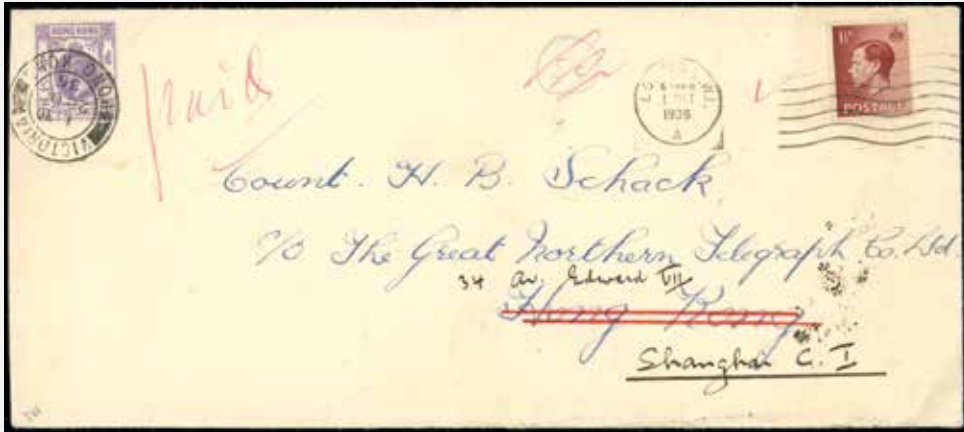 HONG KONG
VICTORIA
HONG KONG
paid
1 OCT
1936
A
1½
POSTAGE
Count. H. B. Schack
c/o The Great Northern Telegraph Co. Ltd.
34 Av. Edward VII
Hong Kong
Shanghai C. I